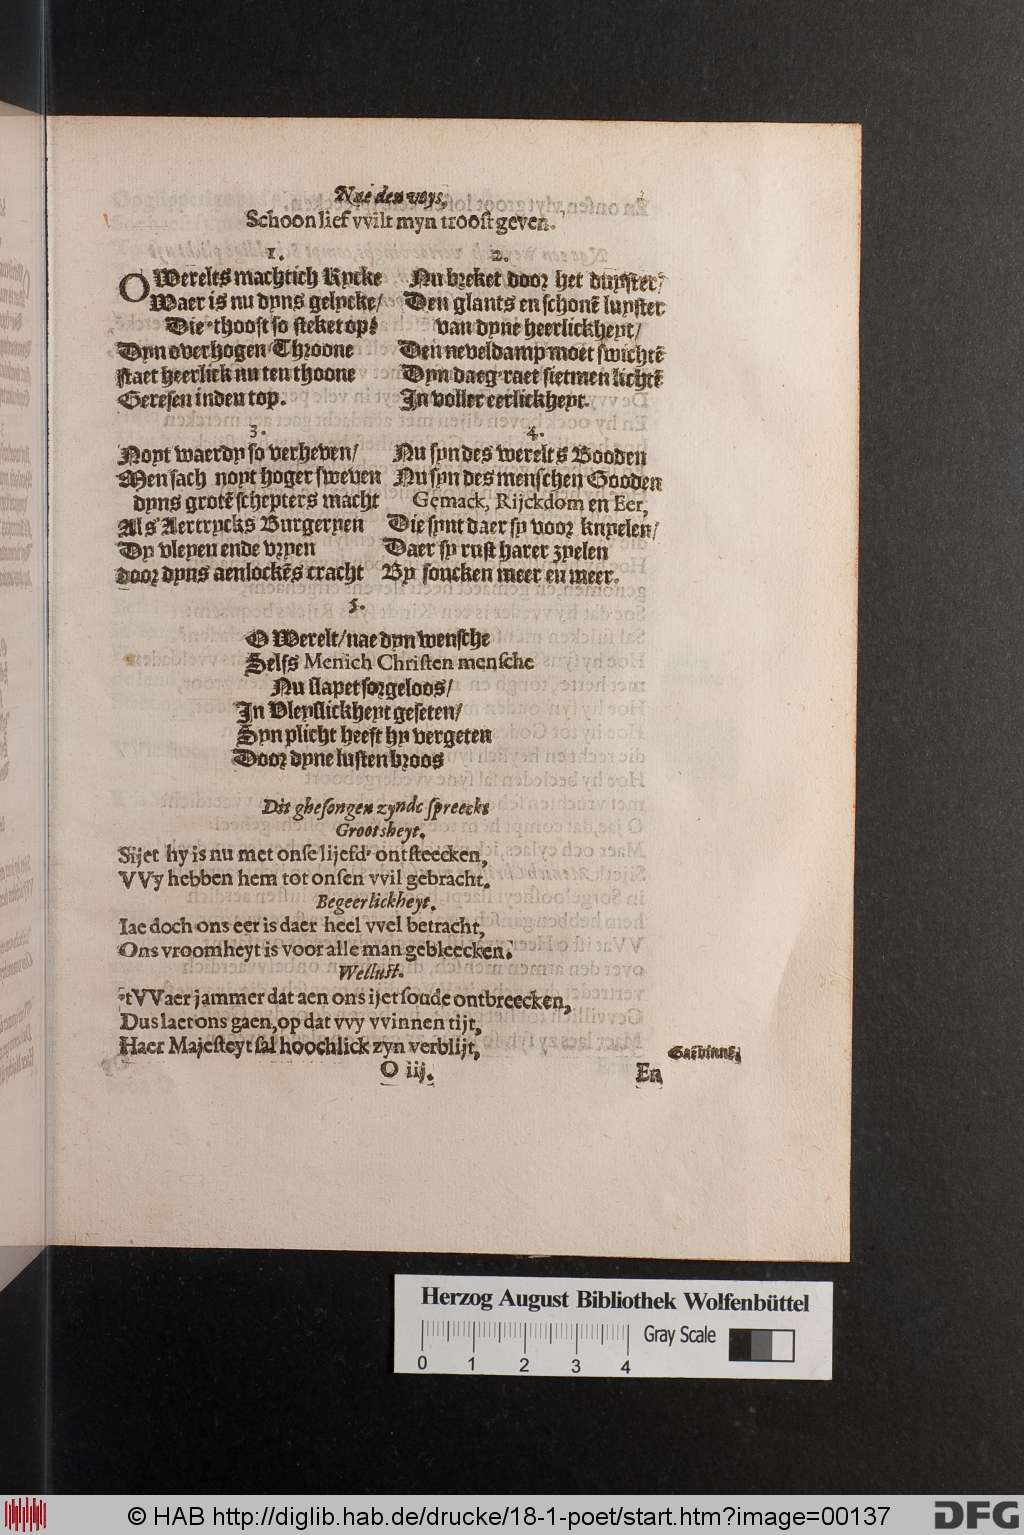 Nae den voys,
Schoon lief vvilt myn troost geven.
1.
O Werelts machtich Rycke
Waer is nu dyns gelycke/
Die thooft so steket op?
Dyn overhogen Throone
staet heerlick nu ten thoone
Geresen inden top.
2.
Nu breket door het duyster/
Den glants en schonē luyster
van dyne heerlickheyt/
Den neveldamp moet swichtē
Dyn daeg-raet sietmen lichtē
In voller eerlickheyt.
3.
Noyt waerdy so verheven/
Men sach noyt hoger sweven
dyns grotē schepters macht
Als Aertrycks Burgeryen
Dy vleyen ende vryen
door dyns aenlockēs cracht
4.
Nu syn des werelts Booden
Nu syn des menschen Gooden
Gemack, Rijckdom en Eer,
Die synt daer sy voor knyelen/
Daer sy rust harer zyelen
By soucken meer en meer.
5.
O Werelt/nae dyn wensche
Selfs Menich Christen mensche
Nu slapet sorgeloos/
In Vleyslickheyt geseten/
Syn plicht heeft hy vergeten
Door dyne lusten broos
Dit ghesongen zynde spreeckt
Grootsheyt.
Sijet hy is nu met onse lijefd' ontsteecken,
VVy hebben hem tot onsen vvil gebracht.
Begeerlickheyt.
Iae doch ons eer is daer heel vvel betracht,
Ons vroomheyt is voor alle man gebleecken.
Wellust.
'tVVaer jammer dat aen ons ijet soude ontbreecken,
Dus laet ons gaen, op dat vvy vvinnen tijt,
Haer Majesteyt sal hoochlick zyn verblijt,
Gaēbinnē.
O iij.
En
Herzog August Bibliothek Wolfenbüttel
Gray Scale
0 1 2 3 4
© HAB http://diglib.hab.de/drucke/18-1-poet/start.htm?image=00137
DFG